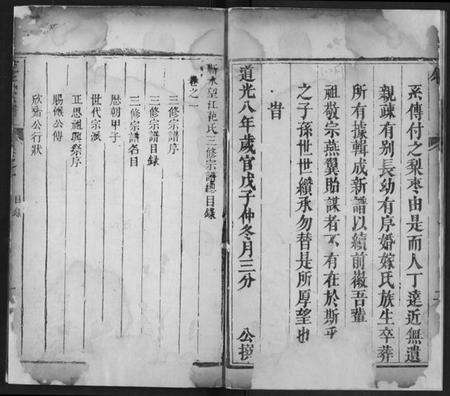 系傳付之梨枣由是而人丁遠近無遺
親疎有別長幼有序婚嫁氏族生卒葬
所有據輯成新譜以續前徽吾輩
祖敬宗燕翼貽謀者不有在於斯乎
之子孫世世續承勿替是所厚望也
旹
道光八年歲官戊子仲冬月三分 公撰
望江 氏三修宗譜總目錄
卷之一
三修宗譜序
三修宗譜目錄
三修宗譜名目
歷朝甲子
世代宗派
正恩 祭序
賜 公傳
欣 公行狀
目錄